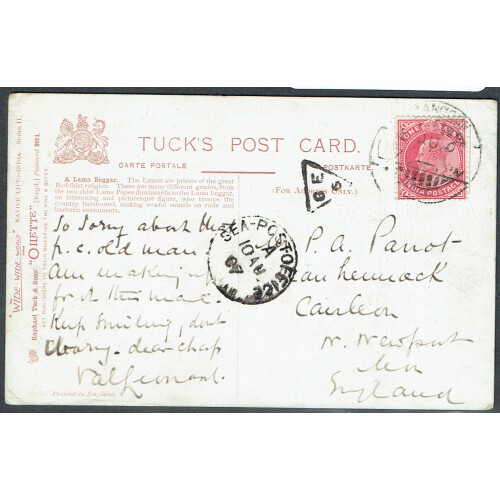 TUCK'S POST CARD.
CARTE POSTALE
POSTKARTE
(For Address Only.)
A Lama Beggar. The Lamas are priests of the great
Buddhist religion. There are many different grades, from
the two chief Popes downwards to the Lama beggar,
an interesting and picturesque figure, who tramps the
country barefooted, making woeful sounds on rude and
barbaric instruments.
So Sorry about that
p.c. old man
Am making up
for it this mail.
Keep Smiling, dont
Worry - dear chap
Printed in England.
"WIDE WIDE WORLD" NATIVE LIFE—INDIA Series II.
Raphael Tuck & Sons' "OILETTE" [Regd.] Postcard 8901.
ART PUBLISHERS TO THEIR MAJESTIES THE KING & QUEEN.
SEA-POST OFFICE
A
10
07
GE
5
RANGOON
ONE ANNA
INDIA POSTAGE
P. A. Parrot
Caerleon
Nr. Newport
Mon
England